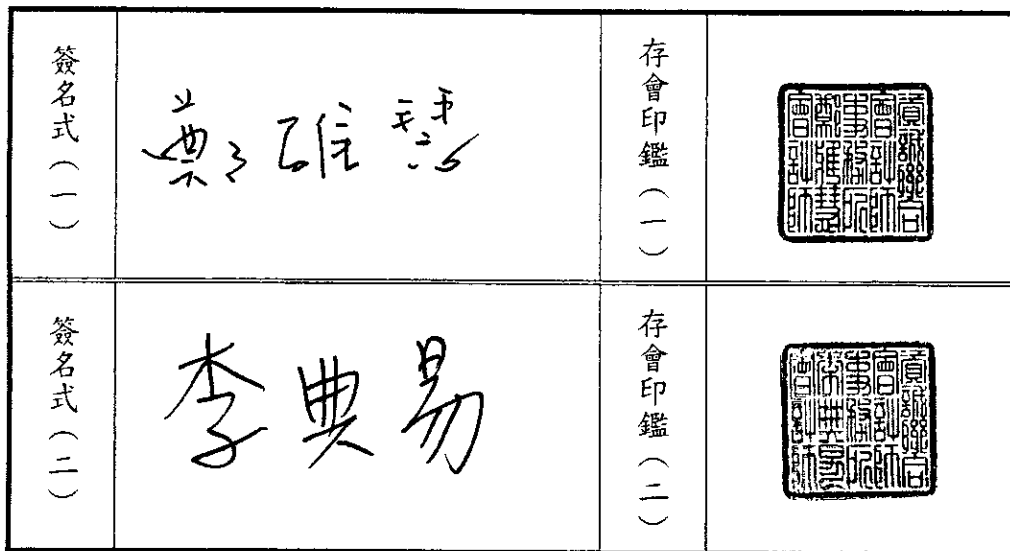 簽名式（一）
鄭雅慧
存會印鑑（一）
資誠聯合
會計師
事務所
鄭雅慧
會計師
簽名式（二）
李典易
存會印鑑（二）
資誠聯合
會計師
事務所
李典易
會計師